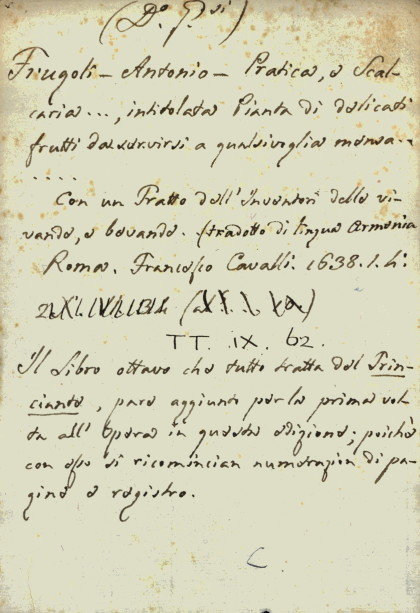 (Do. J.si)
Friugoli - Antonio - Pratica, e Scal-
caria ..., intitolata Pianta di delicati
frutti da servirsi a qualsivoglia mensa..
....
Con un Tratto dell'Inventori delle vi-
vande, e bevande. (tradotto di lingua Armenia
Roma. Francesco Cavalli. 1638. I. 4:
TT. IX. 62.
Il Libro ottavo che tutto tratta del Trin-
ciante, pare aggiunto per la prima vol-
ta all'opera in questa edizione; poichè
con esso si ricomincian numerazion di pa-
gine e registro.
C.